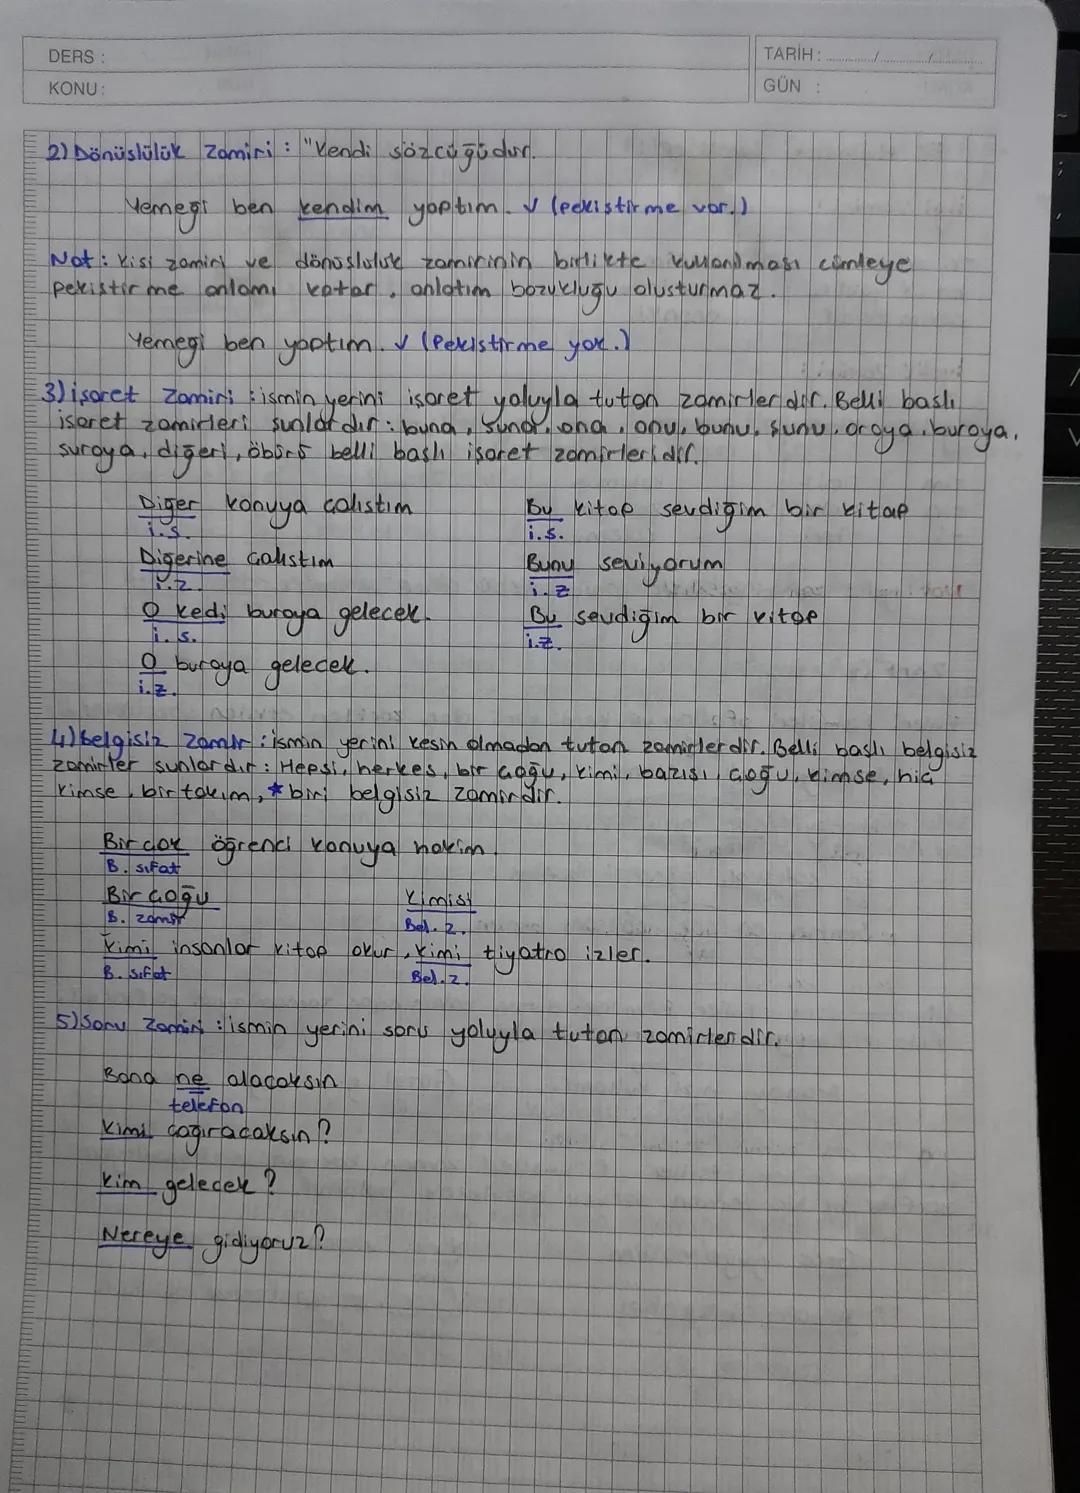 DERS :
KONU:
TARİH: ............/............/............
GÜN :
2) Dönüslülük Zamiri : "Kendi sözcüğüdür.
Yemeği ben kendim yaptım. ✓ (pekistirme var.)
Not : Kisi zamiri ve dönüslülük zamirinin birlikte kullanılması cümleye
pekistirme anlamı katar, anlatım bozukluğu olusturmaz.
Yemegi ben yaptım. ✓ (Pekistirme yok.)
3) işaret Zamiri : ismin yerini işaret yoluyla tutan zamirlerdir. Belli baslı
isaret zamirleri sunlardır : buna, suna, ona, onu, bunu, şunu, oraya, buraya,
suraya, diğeri, öbürü belli baslı işaret zamirleridir.
Diğer konuya calıstım
i.s.
Digerine calıstım
i.z.
O kedi buraya gelecek.
i.s.
O buraya gelecek.
i.z.
Bu kitap sevdiğim bir kitap
i.s.
Bunu seviyorum
i.z
Bu sevdiğim bir kitap
i.z.
4) belgisiz Zamir : ismin yerini kesin olmadan tutan zamirlerdir. Belli baslı belgisiz
zamirler sunlardır : Hepsi, herkes, bir çoğu, kimi, bazısı, çoğu, kimse, hic
kimse, bir takım, * biri belgisiz zamirdir.
Bir çok öğrenci konuya hakim.
B. sıfat
Bir çoğu
B. zamir
Kimisi
Bel. z.
Kimi insanlar kitap okur, kimi tiyatro izler.
B. sıfat
Bel. z.
5) Soru Zamiri : ismin yerini soru yoluyla tutan zamirlerdir.
Bana ne alacaksın
telefon
Kimi çağıracaksın?
Kim gelecek?
Nereye gidiyoruz?